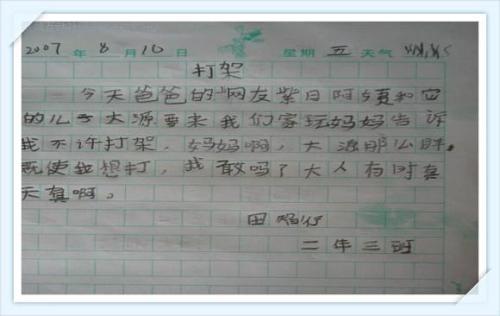 2007 年 8 月 10 日 星期 五 天气
打架
今天爸爸的网友紫日阿姨和它
的儿子大源要来我们家玩妈妈告诉
我不许打架．妈妈啊，大源那么胖，
既使我想打，我敢吗？大人有时真
天真啊。
田
二年三班